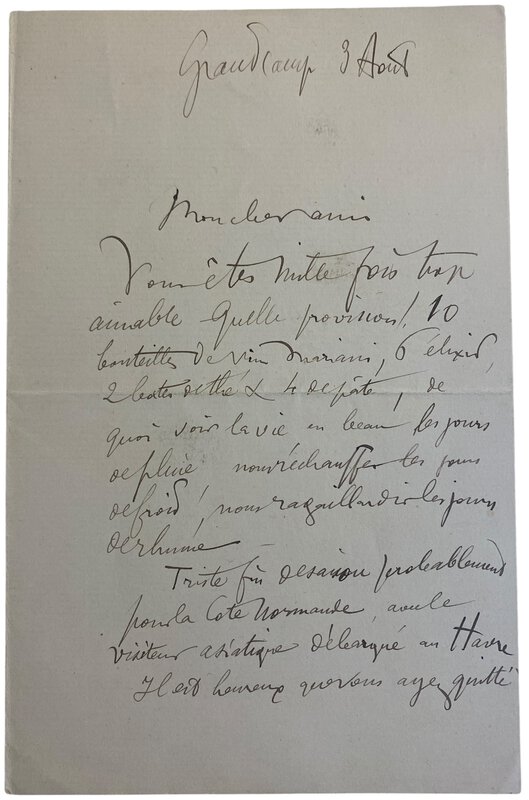 Grandcamp 3 Août
Mon cher ami
Vous êtes mille fois trop
aimable Quelle provision! 10
bouteilles de Vin Mariani, 6 élixir,
2 boites de thé & 4 de pâte, de
quoi voir la vie en beau les jours
de pluie nous réchauffer les jours
de froid, nous ragaillardir les jours
de rhume
Triste fin de saison probablement
pour la Cote Normande, avec le
visiteur asiatique débarqué au Havre
Il est heureux que vous ayez quitté